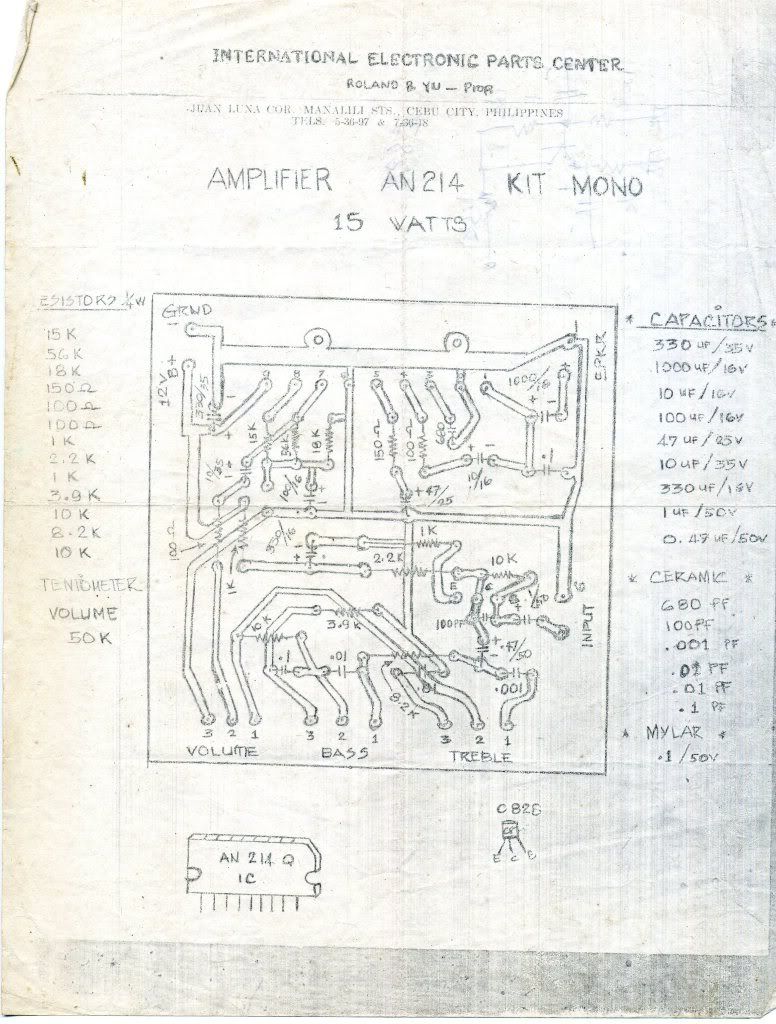 INTERNATIONAL ELECTRONIC PARTS CENTER
ROLAND B YU — PROP
JUAN LUNA COR. MANALILI STS., CEBU CITY, PHILIPPINES
TELS. 5-36-97 & 7-36-18
AMPLIFIER AN214 KIT MONO
15 WATTS
ESISTORS ¼W
15 K
56 K
18 K
150 Ω
100 Ω
100 Ω
1 K
2.2 K
1 K
3.9 K
10 K
8.2 K
10 K
TENTIOMETER
VOLUME
50 K
GRWD
12V B+
SPKR
330/35
1000/16
15K
56K
18K
150Ω
100Ω
680
10/35
100/16
10/16
47/25
100Ω
1K
330/16
1K
2.2K
10K
3.9K
100PF
.47/50
INPUT
.1
.01
8.2K
.01
.001
3 2 1
3 2 1
3 2 1
VOLUME
BASS
TREBLE
* CAPACITORS *
330 UF/35V
1000 UF/16V
10 UF/16V
100 UF/16V
47 UF/25V
10 UF/35V
330 UF/16V
1 UF/50V
0.47 UF/50V
* CERAMIC *
680 PF
100 PF
.001 PF
.01 PF
.01 PF
.1 PF
* MYLAR *
.1/50V
AN 214 Q
IC
C828
E C B